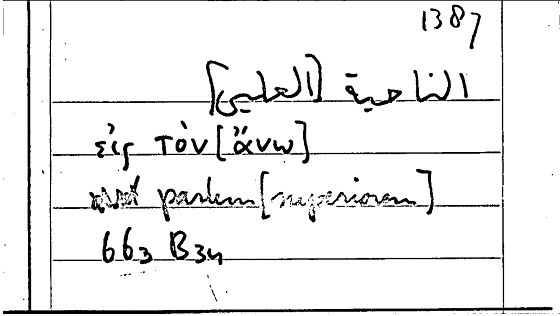 1387
الناحية [العليى]
εἰς τὸν [ἄνω]
partem [superiorem]
663 B34